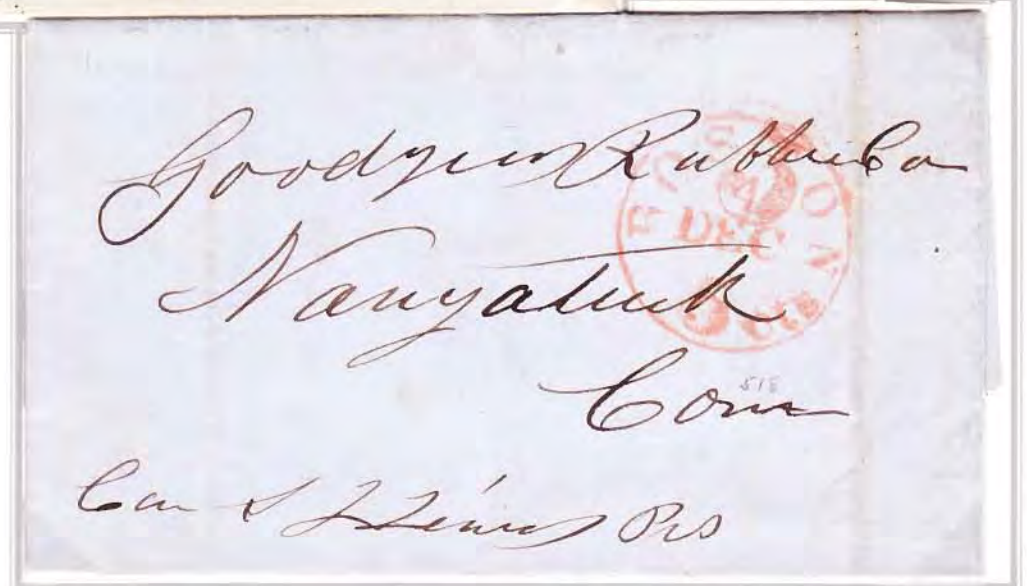 Goodyear Rubber Co
BOSTON
DEC
5 cts
Naugatuck
Conn
518
Care S J Lewis Prs